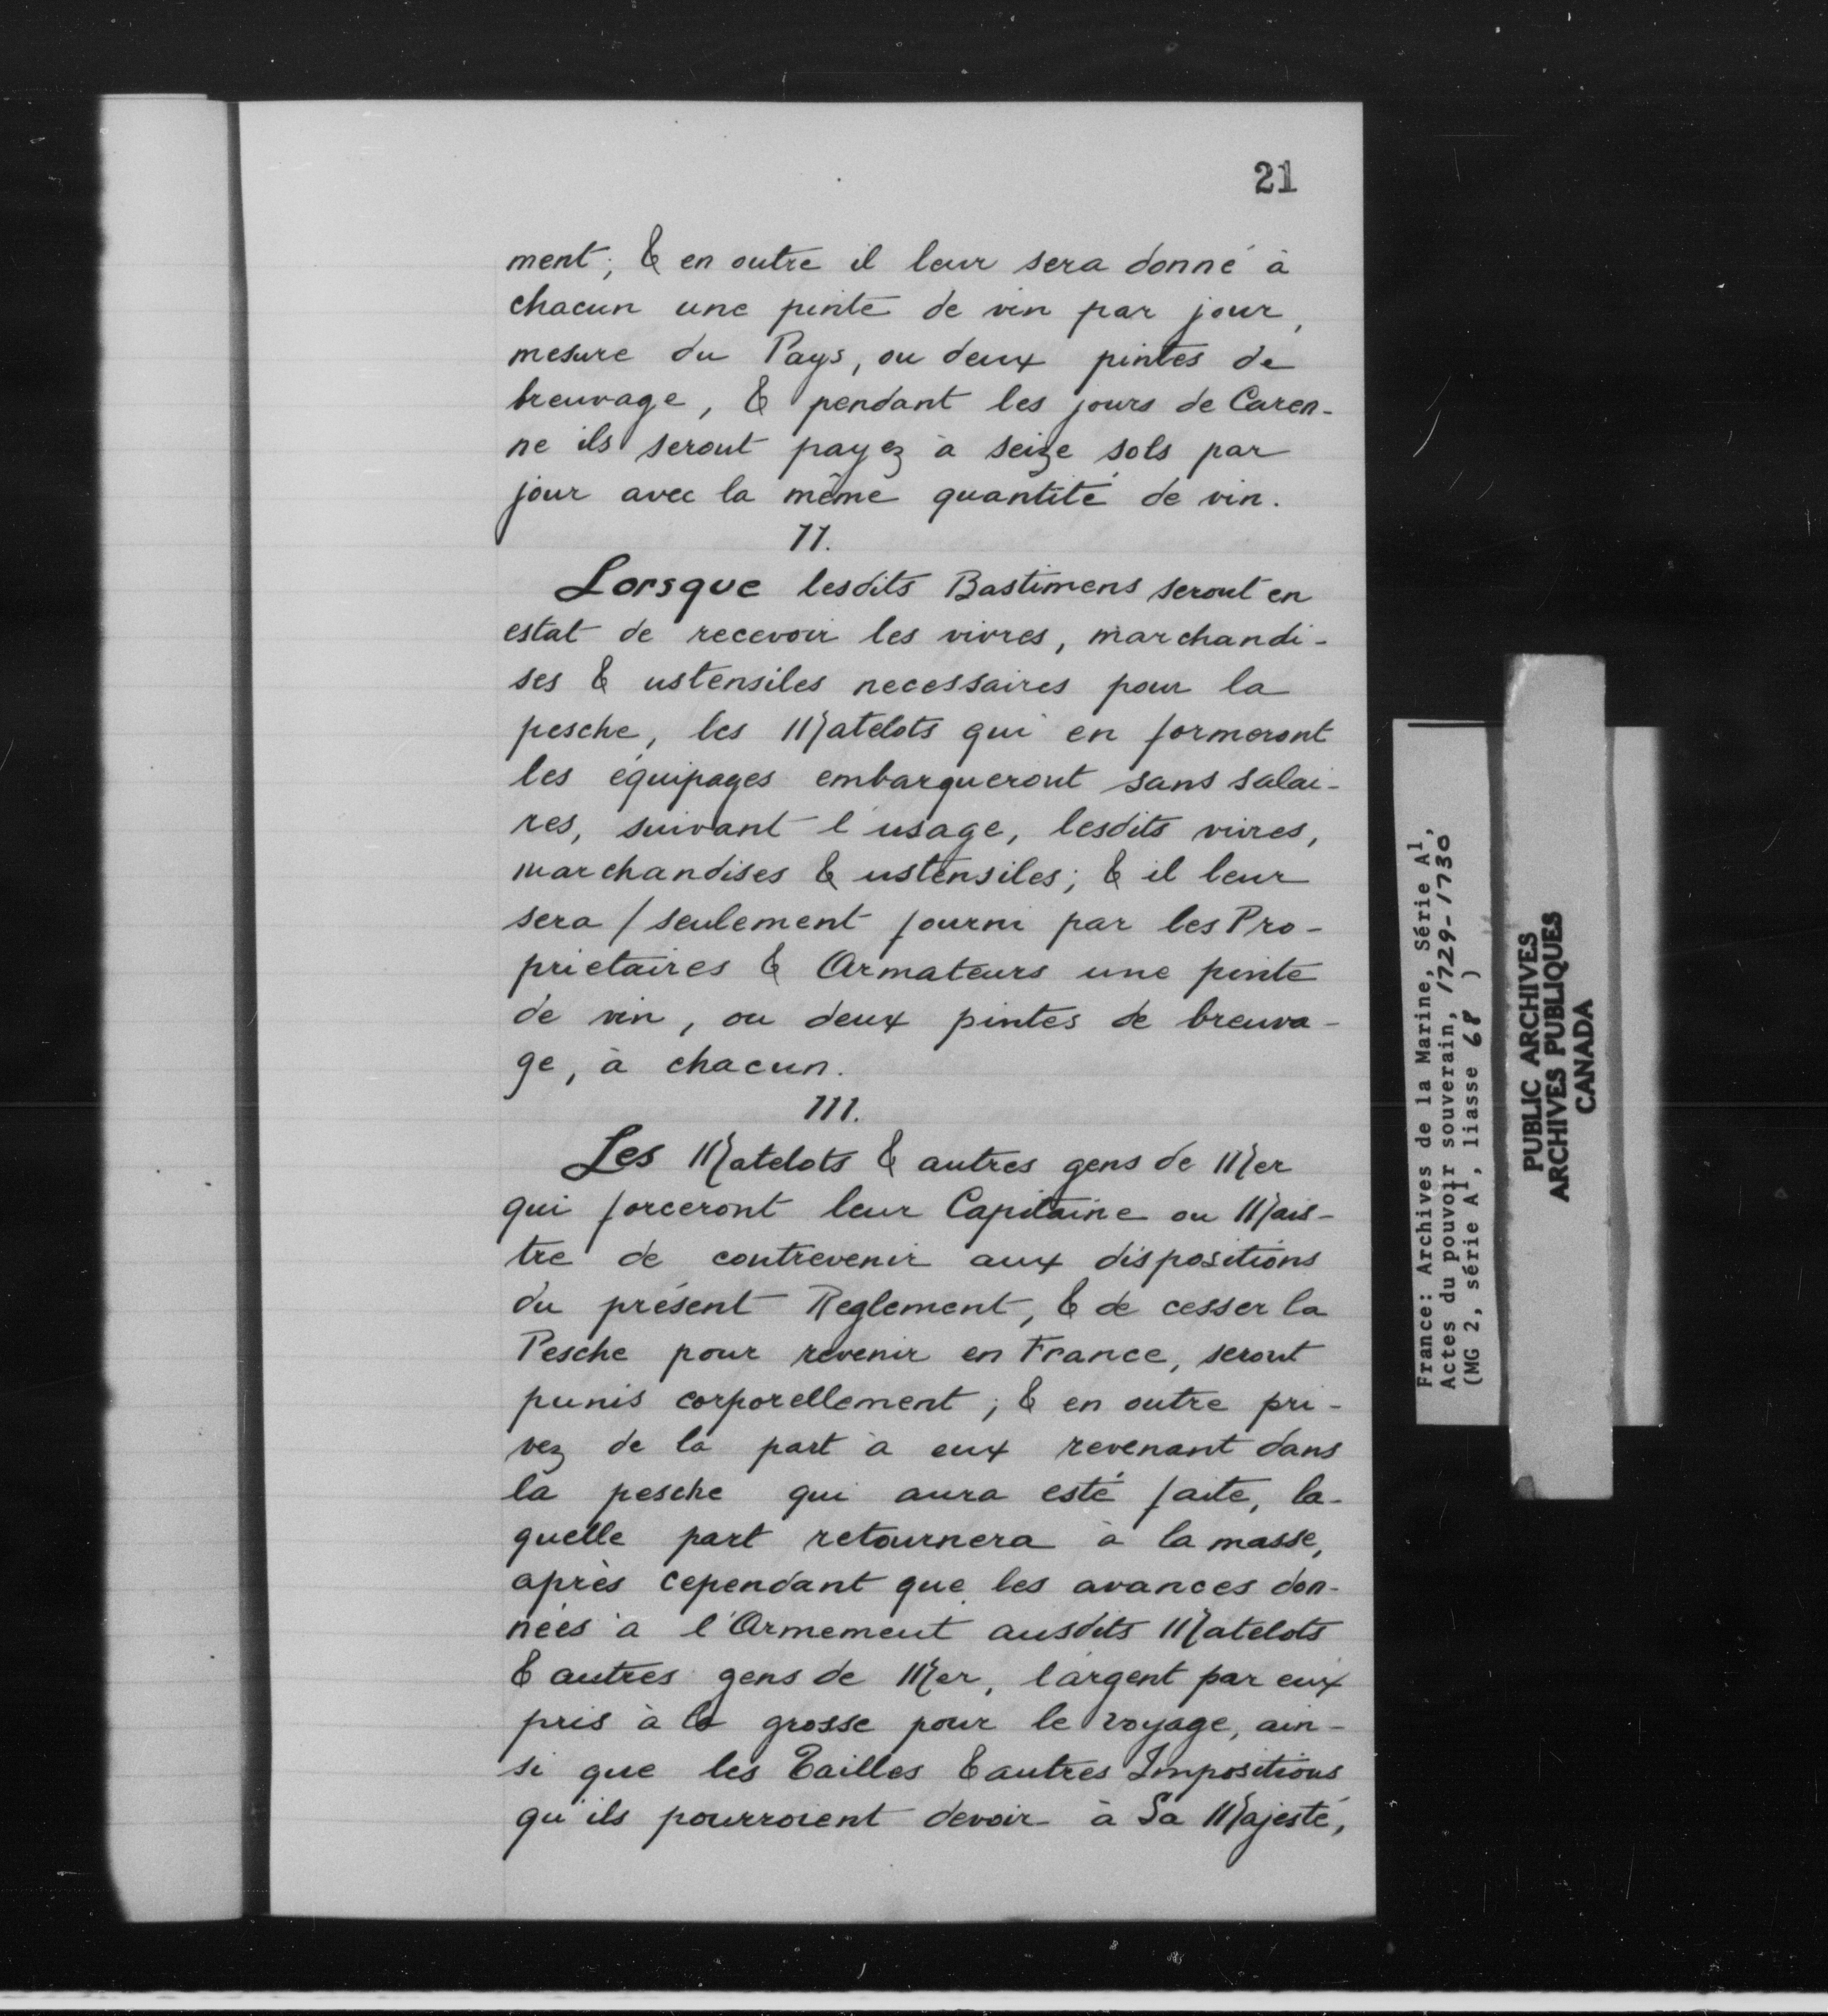 21
ment; & en outre il leur sera donné à
chacun une pinte de vin par jour,
mesure du Pays, ou deux pintes de
breuvage, & pendant les jours de Caren-
ne ils seront payez à seize sols par
jour avec la même quantité de vin.
II.
Lorsque lesdits Bastimens seront en
estat de recevoir les vivres, marchandi-
ses & ustensiles necessaires pour la
pesche, les Matelots qui en formeront
les équipages embarqueront sans salai-
res, suivant l'usage, lesdits vivres,
marchandises & ustensiles; & il leur
sera / seulement fourni par les Pro-
prietaires & Armateurs une pinte
de vin, ou deux pintes de breuva-
ge, à chacun.
III.
Les Matelots & autres gens de Mer
qui forceront leur Capitaine ou Mais-
tre de contrevenir aux dispositions
du présent Reglement, & de cesser la
Pesche pour revenir en France, seront
punis corporellement; & en outre pri-
vez de la part à eux revenant dans
la pesche qui aura esté faite, la-
quelle part retournera à la masse,
après cependant que les avances don-
nées à l'Armement ausdits Matelots
& autres gens de Mer, l'argent par eux
pris à la grosse pour le voyage, ain-
si que les Tailles & autres Impositions
qu'ils pourroient devoir à Sa Majesté,
France: Archives de la Marine, Série A1,
Actes du pouvoir souverain, 1729-1730
(MG 2, série A1, liasse 68 )
PUBLIC ARCHIVES
ARCHIVES PUBLIQUES
CANADA